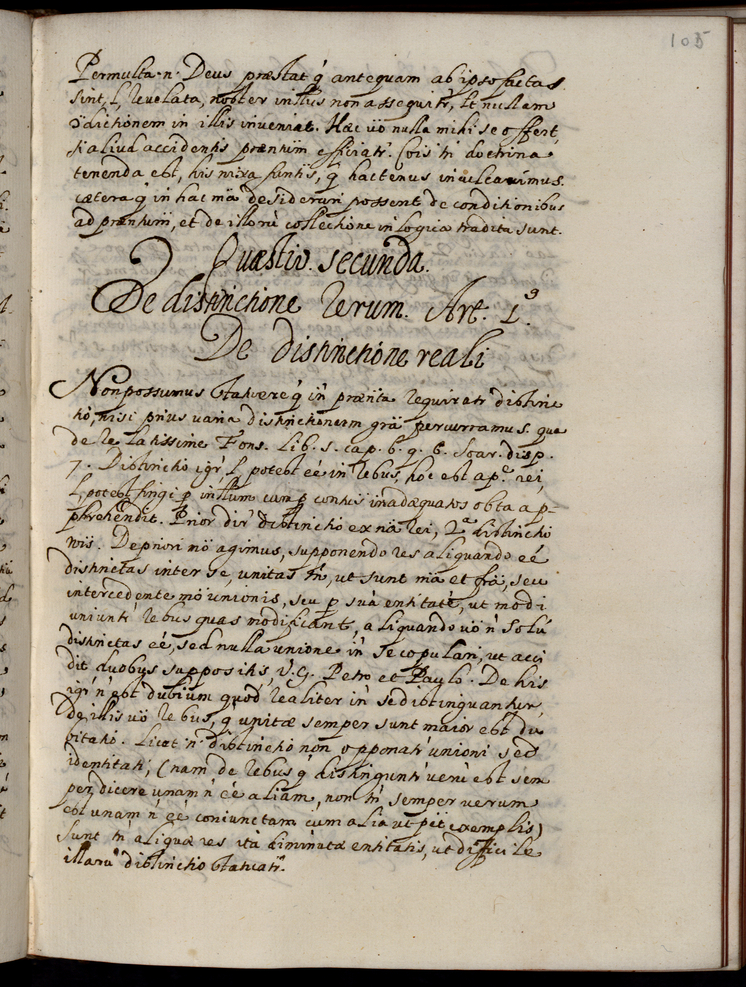 105
Permulta .n. Deus præstat q̃ antequam ab ipso factas
sint, l̃ revelata, noster intllũs non assequitr̃, lt nullam
ↄ̃dictionem in illis inveniat. Hæc ũo nulla mihi se offert,
si aliud accidentis præntium efficiatr̃. Cõis tñ doctrina
tenenda est, his nixa funtis, q̃ hactenus inculcavimus.
cætera q̃ in hac mã desiderari possent de conditionibus
ad præntium, et de illorũ collectione in logica tradita sunt.
Quæstio. secunda.
De distinctione rerum. Art. 1.º
De distinctione reali
Non possumus statuere q̃ iñ prænta requiratr̃ distinc
tio, nisi prius varia distinctionem grã percurramus. qua
de re latissime Fons. Lib. 5. cap. 6. q. 6. Soar. disp.
7. Distinctio igr̃, l̃ potest eé in rebus, hoc est a p.e rei,
l̃ potest fingi p intllum cum p contis inadæquatos obta ap-
prehendit. Prior dir̃ distinctio ex nã rei, 2.ª distinctio
nis. De priori mõ agimus, supponendo res aliquando eé
distinctas inter se, unitas tñ, ut sunt mã et frã, seu
intercedente mõ unionis, seu p suã entitatẽ, ut modi
uniuntr̃ rebus quas modificant, aliquando ũo ñ solũ
distinctas eé, sed nulla unione iñ se copulari, ut acci
dit duobus suppositis, V.G. Petro et Paulo. De his
igr̃ ñ est dubium quod realiter iñ se distinguantur,
De illis ũo rebus, q̃ unitæ semper sunt maior est du
bitatio. Licet .ñ. distinctio non opponatr̃ unioni sed
identitati, (nam de rebus q̃ distinguntr̃ veru est sem
per dicere unam ñ eé aliam, non tñ semper verum
est unam ñ eé coniunctam cum alia ut pẽt exemplis)
sunt tñ aliquæ res ita diminutæ entitatis, ut difficile
illarũ distinctio statuatr̃.